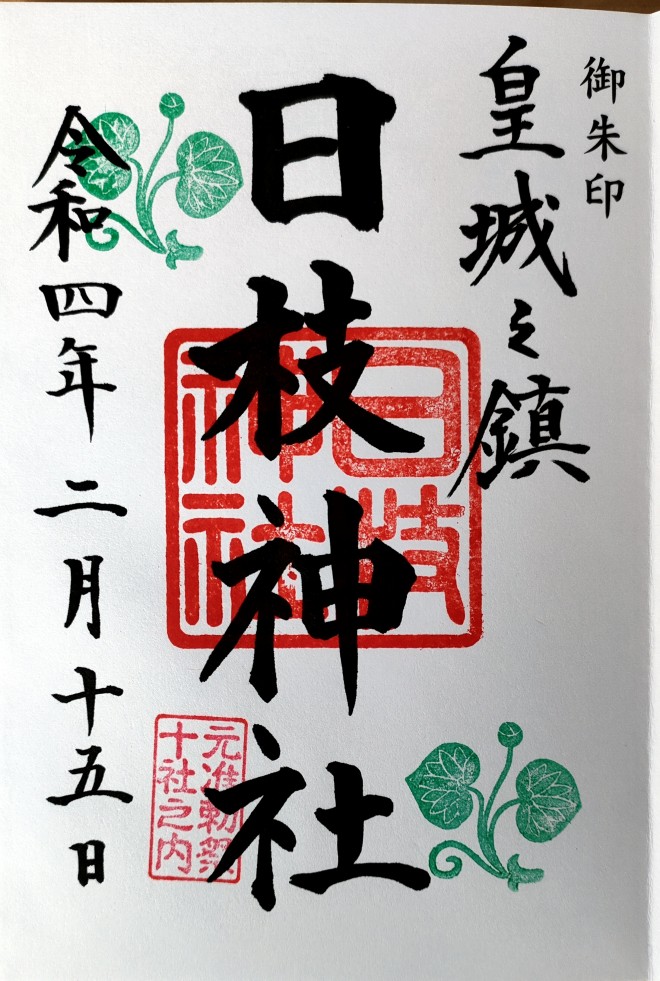 御朱印
皇城之鎮
日枝神社
日枝
神社
元准勅祭
十社之内
令和四年二月十五日